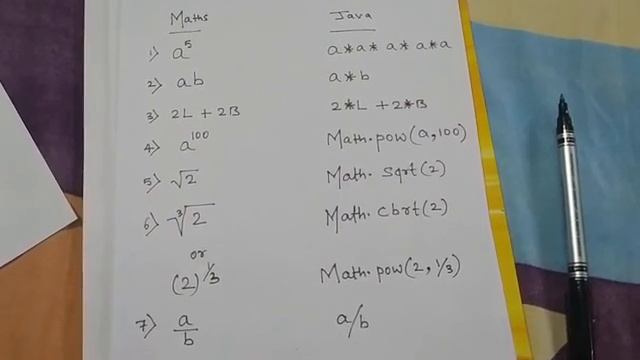 Maths Java
1) a⁵ a*a*a*a*a
2) ab a*b
3) 2L + 2B 2*L + 2*B
4) a¹⁰⁰ Math.pow(a,100)
5) √2 Math.sqrt(2)
6) ³√2 Math.cbrt(2)
or
(2)^1/3 Math.pow(2, 1/3)
7) a/b a/b